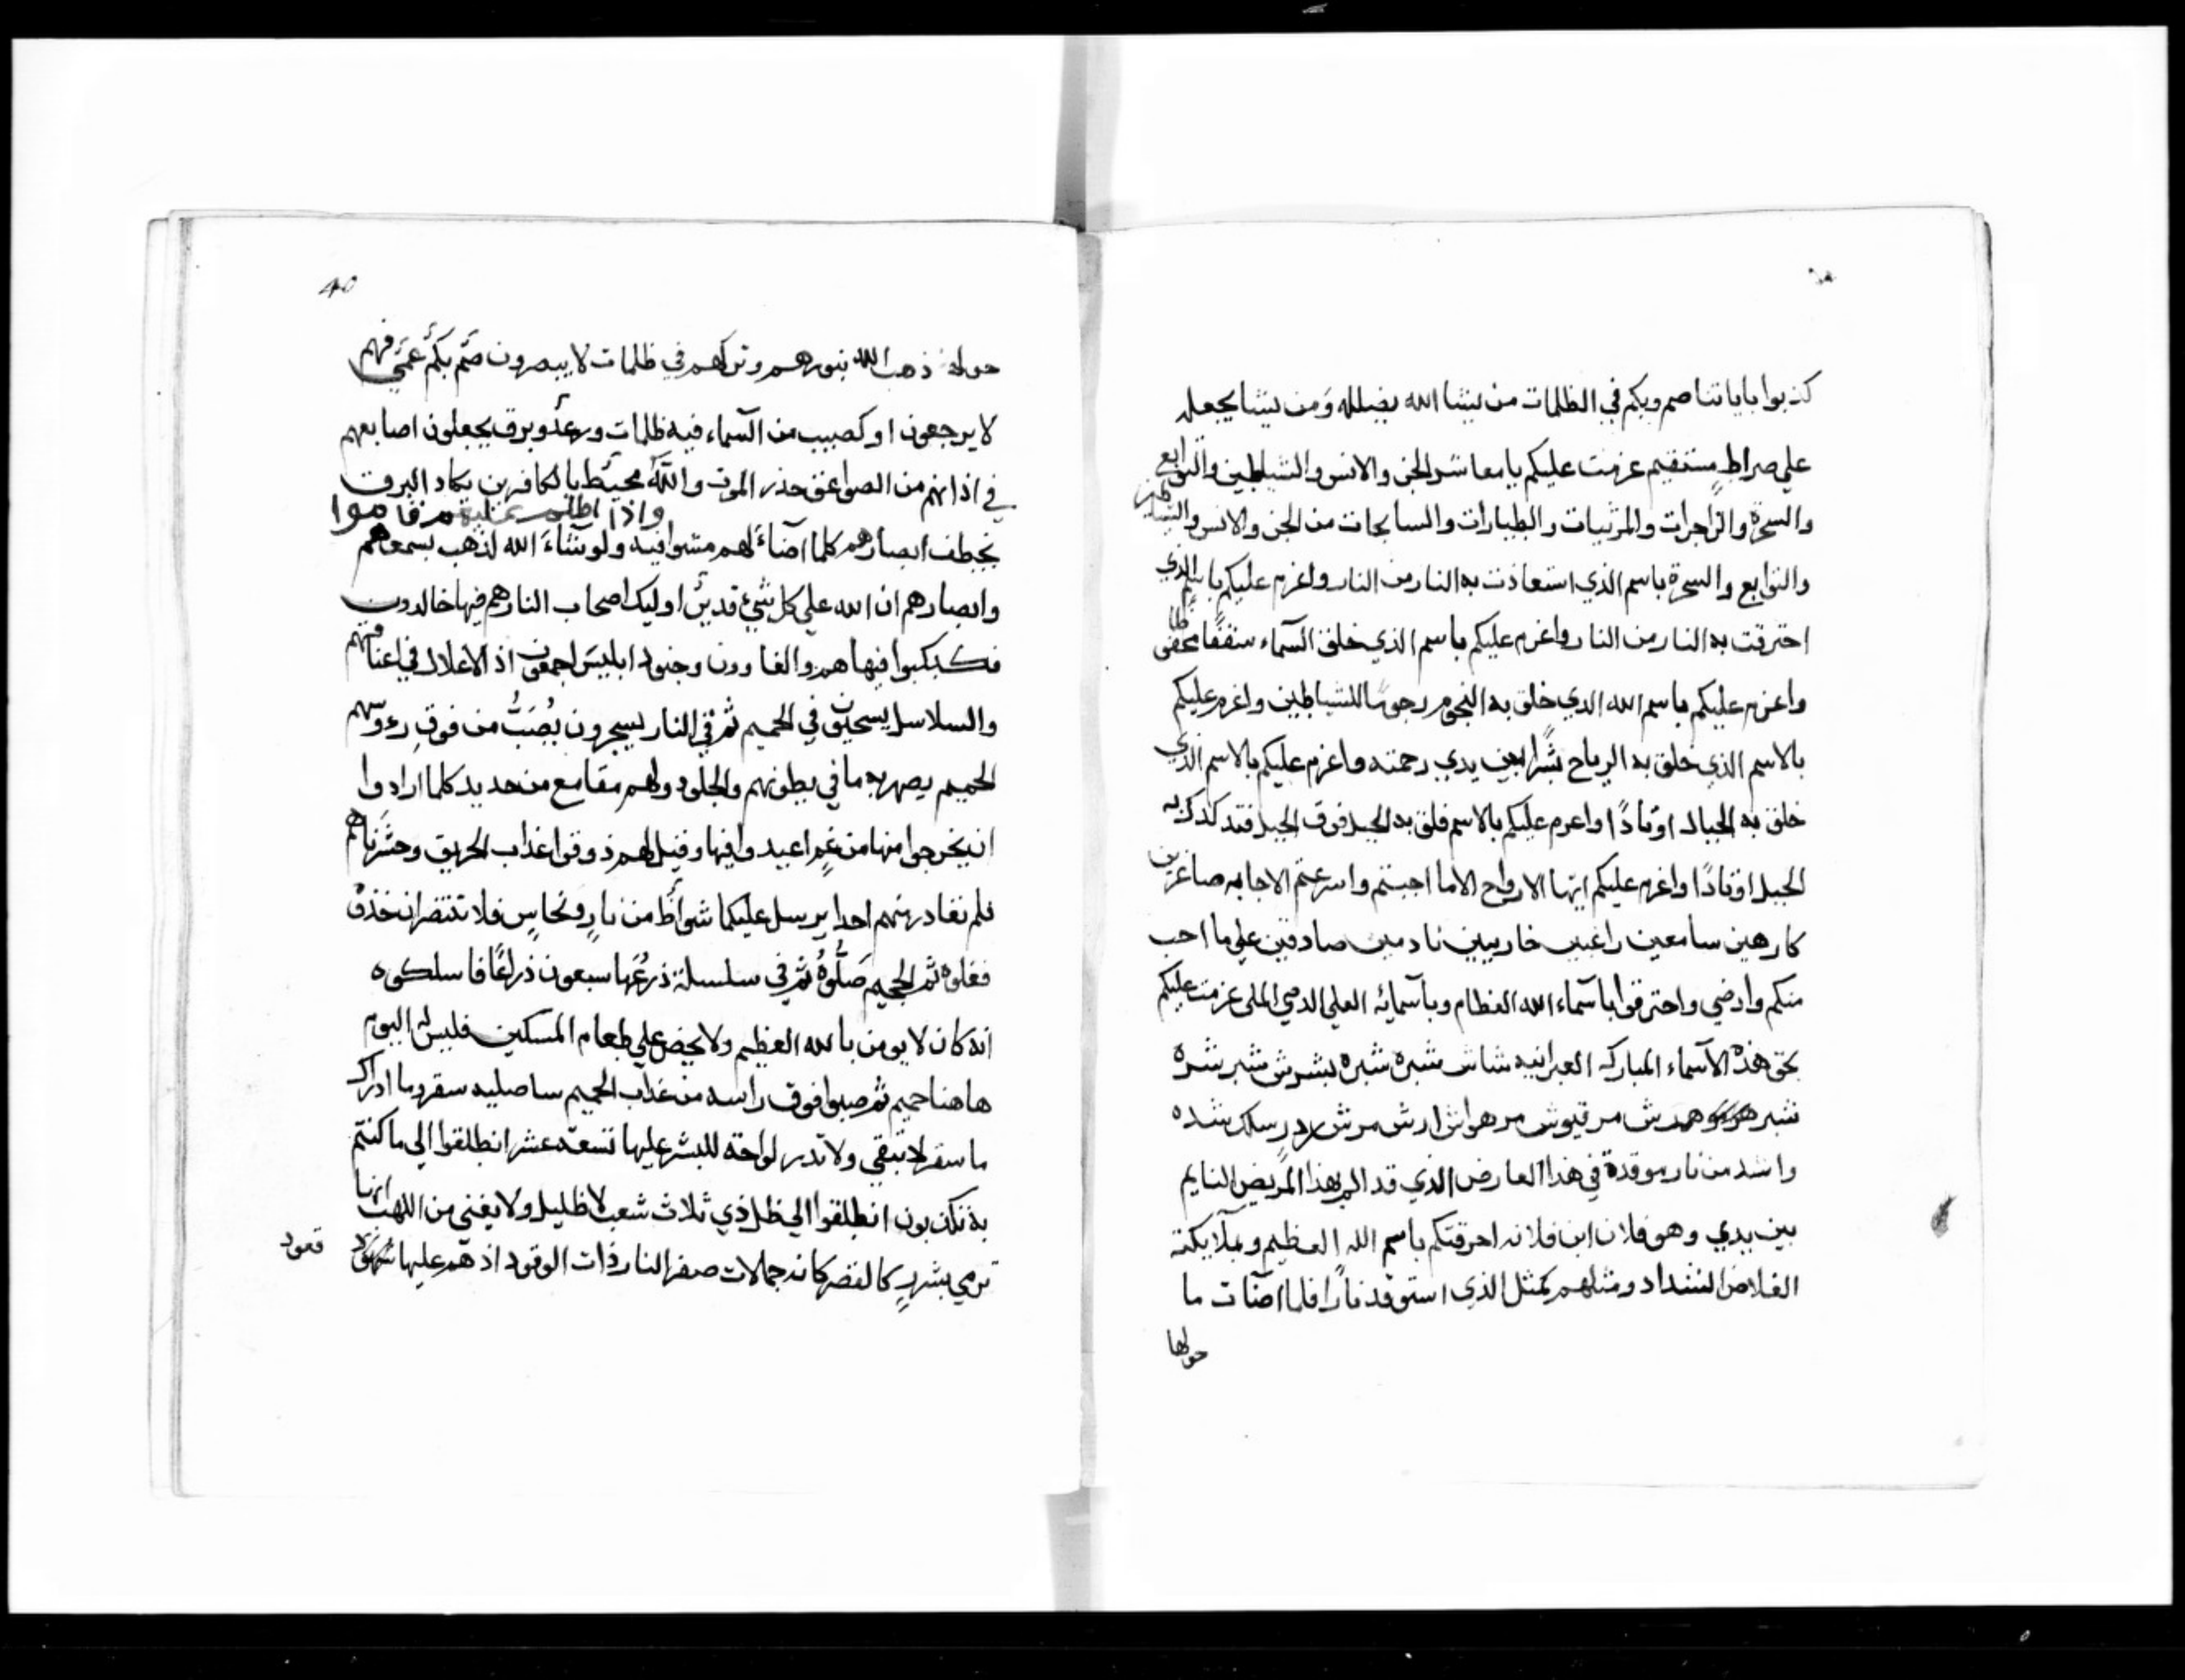 كذبوا باياتنا صم وبكم في الظلمات من يشا الله يضلله ومن يشا يجعله
علي صراط مستقيم عزمت عليكم يا معاشر الجن والانس والشياطين والتوابع
والسحرة والزاجرات والمرتبات والطيارات والسابحات من الجن والانس والشياطين
والتوابع والسحرة باسم الذي استعاذت به النار من النار واعزم عليكم باسم الذي
احترقت به النار من النار واعزم عليكم باسم الذي خلق السماء سقفا محفوظا
واعزم عليكم باسم الله الذي خلق به النجوم رجوما للشياطين واعزم عليكم
بالاسم الذي خلق به الرياح بشرا بين يدي رحمته واعزم عليكم بالاسم الذي
خلق به الجبال اوتادا واعزم عليكم بالاسم فلق به الجبل فوق الجبل
الجبل اوتادا واعزم عليكم ايتها الارواح الاما اجبتم واسرعتم الاجابه صاغرين
كارهين سامعين راغبين خاريبين نادمين صادقين علي ما احب
منكم وارضي واحترقوا باسماء الله العظام وباسمائه العلي عزمت عليكم
بحق هذه الاسماء المباركه العبرانيه شاش شبره شبره بشرش شبر شره
شبر همدش مرقيوش مرهواش ارش مرش شده
واشد من نار موقدة في هذا العارض الذي قد الم بهذا المريض النايم
بين يدي وهو فلان ابن فلانه احرقتكم باسم الله العظيم وبملايكته
الغلاض الشداد ومثلهم كمثل الذي استوقد نارا فلما اضآت ما
حولها
40
حوله ذهب الله بنورهم وتركهم في ظلمات لا يبصرون صم بكم عمي فهم
لا يرجعون او كصيب من السماء فيه ظلمات ورعد وبرق يجعلون اصابعهم
في اذانهم من الصواعق حذر الموت والله محيط بالكافرين يكاد البرق
واذا اظلم عليهم قاموا
يخطف ابصارهم كلما اضاء لهم مشوا فيه ولو شاء الله لذهب بسمعهم
وابصارهم ان الله علي كل شيء قدير اوليك اصحاب النار هم فيها خالدون
فكبكبوا فيها هم والغاوون وجنود ابليس اجمعون اذ الاغلال في اعناقهم
والسلاسل يسحبون في الحميم ثم في النار يسجرون يصب من فوق رءوسهم
الحميم يصهر به ما في بطونهم والجلود ولهم مقامع من حديد كلما ارادوا
ان يخرجوا منها من غم اعيدوا فيها وقيل لهم ذوقوا عذاب الحريق وحشرناهم
فلم نغادر منهم احدا يرسل عليكما شواظ من نار ونحاس فلا تنتصران خذوه
فغلوه ثم الجحيم صلوه ثم في سلسلة ذرعها سبعون ذراعا فاسلكوه
انه كان لا يومن بالله العظيم ولا يحض علي طعام المسكين فليس له اليوم
هاهنا حميم ثم صبوا فوق راسه من عذاب الحميم ساصليه سقر وما ادراك
ما سقر لا تبقي ولا تدر لواحة للبشر عليها تسعة عشر انطلقوا الي ما كنتم
به تكذبون انطلقوا الي ظل ذي ثلاث شعب لا ظليل ولا يغني من اللهب انها
ترمي بشرر كالقصر كانه جمالات صفر النار ذات الوقود اذ هم عليها
قعود